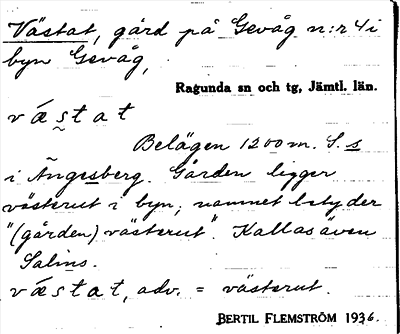 Västat, gård på Gevåg n:r 4 i
byn Gevåg,
Ragunda sn och tg, Jämtl. län.
v ǽ s̰ t a t
Belägen 1200 m. S. s
i Ängesberg. Gården ligger
västerut i byn; namnet betyder
"(gården) västerut". Kallas även
Salins.
v ǽ s̰ t a t, adv. = västerut.
BERTIL FLEMSTRÖM 1936.